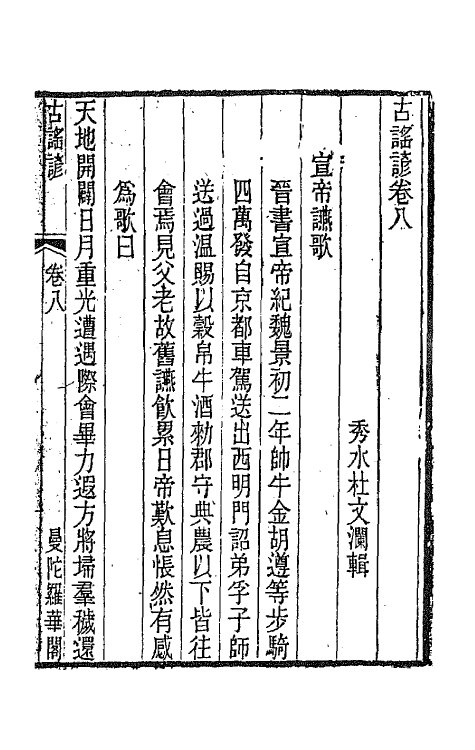 古謠諺卷八
秀水杜文瀾輯
宣帝讌歌
晉書宣帝紀魏景初二年帥牛金胡遵等步騎
四萬發自京都車駕送出西明門詔弟孚子師
送過温賜以穀帛牛酒勑郡守典農以下皆往
會焉見父老故舊讌飮累日帝歎息悵然有感
爲歌曰
天地開闢日月重光遭遇際會畢力遐方將埽羣穢還
古謠諺 卷八 曼陀羅華閣